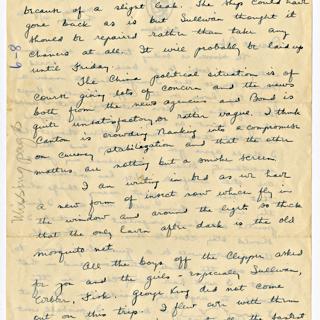 because of a slight leak. The ship could have
gone back as is but Sullivan thought it
should be repaired rather than take any
chances at all. It will probably be laid up
until Friday.
The China political situation is of
course giving lots of concern and the news
both from the news agencies and Bond is
quite unsatisfactory or rather vague. I think
Canton is crowding Nanking into a compromise
on currency stabilization and that the other
matters are nothing but a smoke screen.
I am writing in bed as we have
a new form of insect now which fly in
the window and around the lights so thick
that the only haven after dark is the old
mosquito net.
All the boys off the Clipper asked
for you and the girls - especially Sullivan,
Fisk. George King did not come
out on this trip. I flew over with them
6-8
Missing page